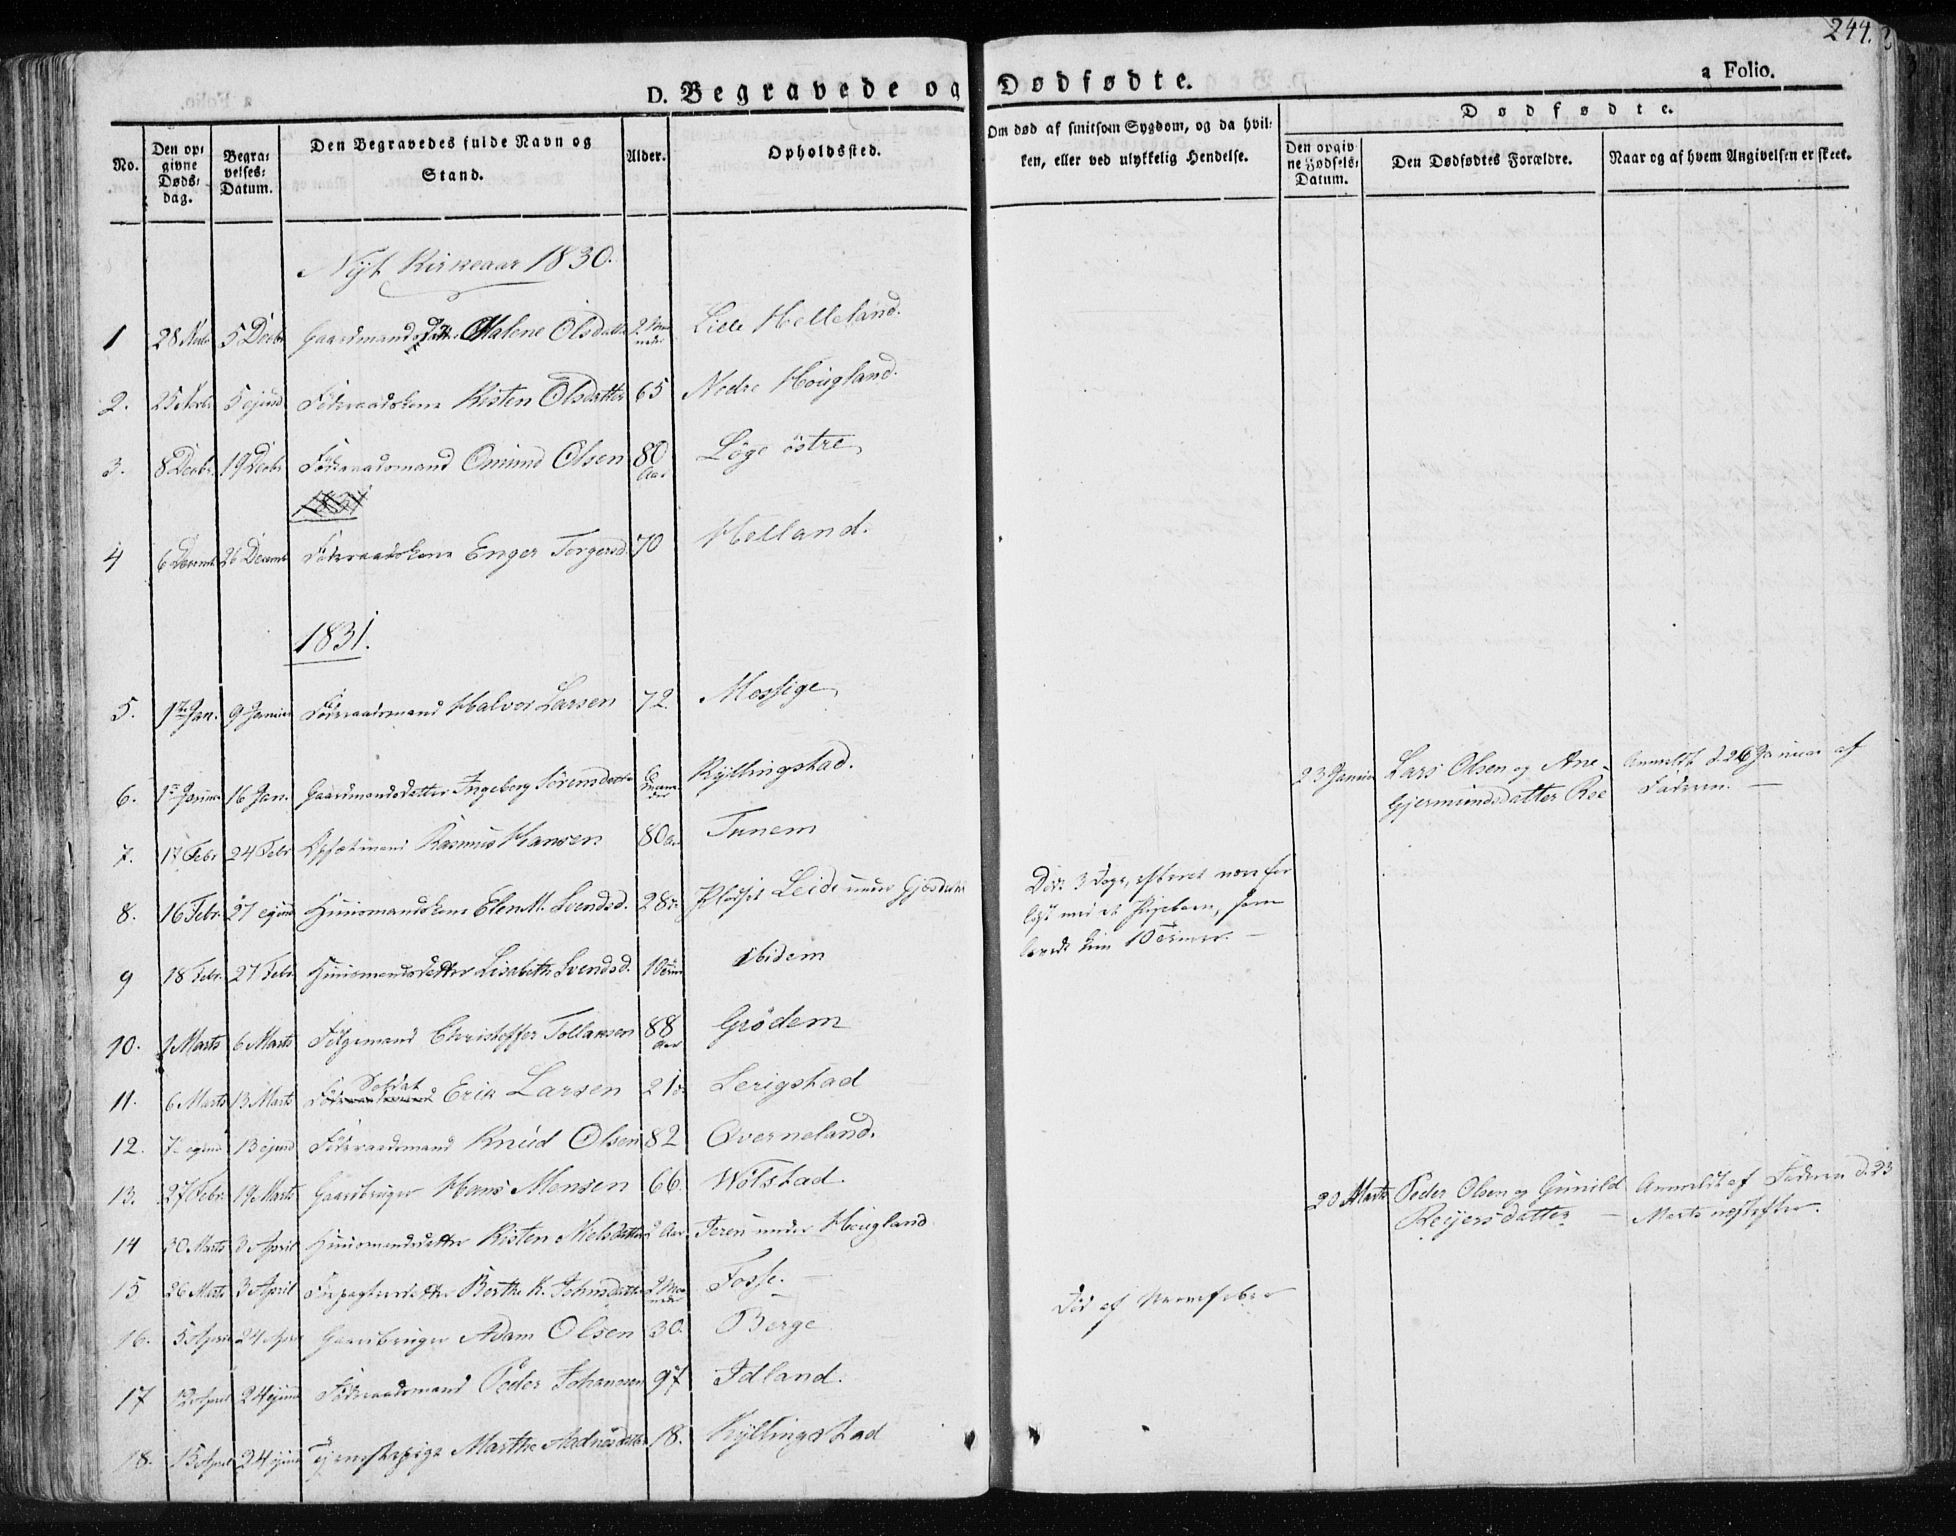 244.
D. Begravede og Dødfødte.
a Folio.
No.
Den op-
givne
Døds-
dag.
Begra-
velses-
Datum.
Den Begravedes fulde Navn og
Stand.
Alder.
Opholdssted.
Om død af smitsom Sygdom, og da hvil-
ken, eller ved ulykkelig Hendelse.
Dødfødte.
Den opgiv-
ne Fødsels-
Datum.
Den Dødfødtes Forældre.
Naar og af hvem Angivelsen er skeet.
Nyt Kirkeaar 1830.
1 28 5 Decbr Gaardmands Malene Olsdatter 2 Lille Helleland.
2. 25 5 ejusd Föderaadskone Kisten Olsdatter 65 Nedre Hougland.
3. 8 Decbr 19 Decbr Föderaadsmand Omund Olsen 80 Aar Löge östre
1831
4 6 Decemb. 26 Decemb Föderaadskone Enger Torgersd. 70 Helland.
1831.
5. 1ste Jan. 9 Januar Föderaadsmand Halvor Larsen 72. Mossige
6. 1ste Januar 16 Jan. Gaardmandsdatter Ingeborg Sörensdatter 6 Kyllingstad.
23 Januar Lars Olsen og Ane Gjermundsdatter Roe Anmeldt d. 26 Januar af Faderen.
7. 17 Febr 24 Febr Rasmus Hansen 80 Aar Tunem
8. 16 Febr. 27 ejusd Huusmandskone Elen M. Svendsd. 28 Pladset Leide under Gjesdahl
Döde 3 Dage, efterat være for
löst med et Pigebarn, som
levede kun 10 Timer.
9 18 Febr. 27 Febr Huusmandsdatter Lisabeth Svendsd. 10 Timer ibidem
10. 1 Marts 6 Marts Fölgemand Christoffer Tollaksen 88 Aar Grödem
11. 6 Marts 13 Marts Soldat Erik Larsen 21 Lerigstad
12. 7 ejusd 13 ejusd Föderaadsmand Knud Olsen 82 Qverneland.
13. 27 Febr. 19 Marts Gaardbruger Hans Monsen 66. Wölstad.
20 Marts Peder Olsen og Gunild Reijersdatter Anmeldt af Faderen d. 23 Marts næstefter.
14 30 Marts 3 April Huusmandsdatter Kisten Nielsdatter 2 Aar under Hougland
15 26 Marts 3 April Berthe K. Johnsdatter 2 Fosse.
16. 5 April 24 April Gaardbruger Adam Olsen 30. Berge
Död af Nervefeber
17 12 April 24 ejusd Föderaadsmand Peder Johannsen 97 Idland.
18. 15 April 24 ejusd Tjenestepige Marthe Aadnesdatter 18. Kyllingstad